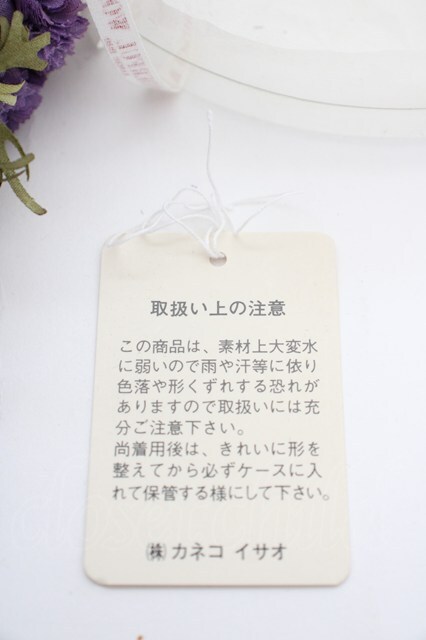 取扱い上の注意
この商品は、素材上大変水
に弱いので雨や汗等に依り
色落や形くずれする恐れが
ありますので取扱いには充
分ご注意下さい。
尚着用後は、きれいに形を
整えてから必ずケースに入
れて保管する様にして下さい。
㈱ カネコ イサオ